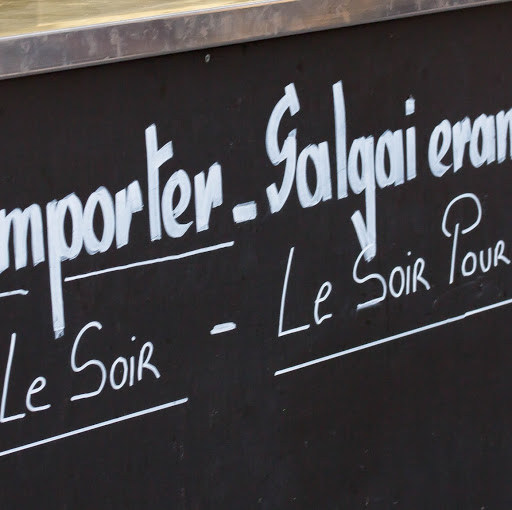 mporter - Salgai eran
Le Soir - Le Soir Pour